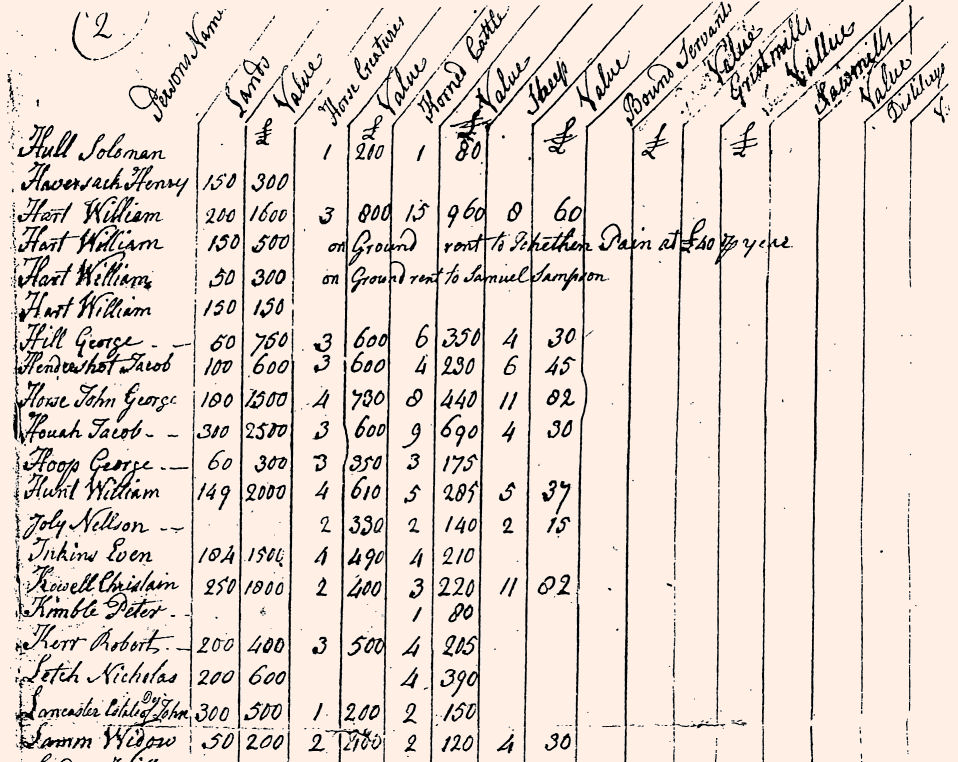 2
Persons Name Lands Value Horse Creatures Value Horned Cattle Value Sheep Value Bound Servants Value Gristmills Vallue Sawmills Value Distilerys V.
£ £ £ £ £ £
Hull Soloman 1 200 1 80
Haversack Henry 150 300
Hart William 200 1600 3 800 15 960 8 60
Hart William 150 500 on Ground rent to Pain at £40 ⅌ year
Hart William 50 300 on Ground rent to Samuel Sampson
Hart William 150 150
Hill George 60 750 3 600 6 350 4 30
Hendershot Jacob 100 600 3 600 4 230 6 45
Horse John George 180 1500 4 730 8 440 11 82
Houah Jacob 300 2500 3 600 9 690 4 30
Hoop George 60 300 3 350 3 175
Hunt William 149 2000 4 610 5 285 5 37
Joly Nellson 2 330 2 140 2 15
Inkins Even 184 1500 4 490 4 210
Kowell Christain 250 1800 2 400 3 220 11 82
Kimble Peter 1 80
Kerr Robert 200 400 3 500 4 205
Letch Nicholas 200 600 4 390
Lancaster Estate of Dd John 300 500 1 200 2 150
Lamm Widow 50 200 2 400 2 120 4 30